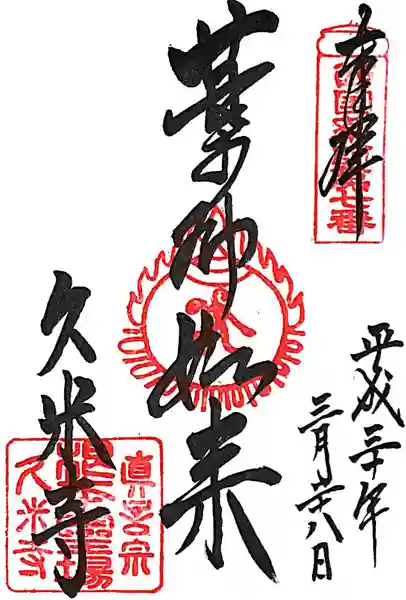 奉拝
平成三十年
三月廿八日
薬師如来
久米寺
真言宗
久米寺